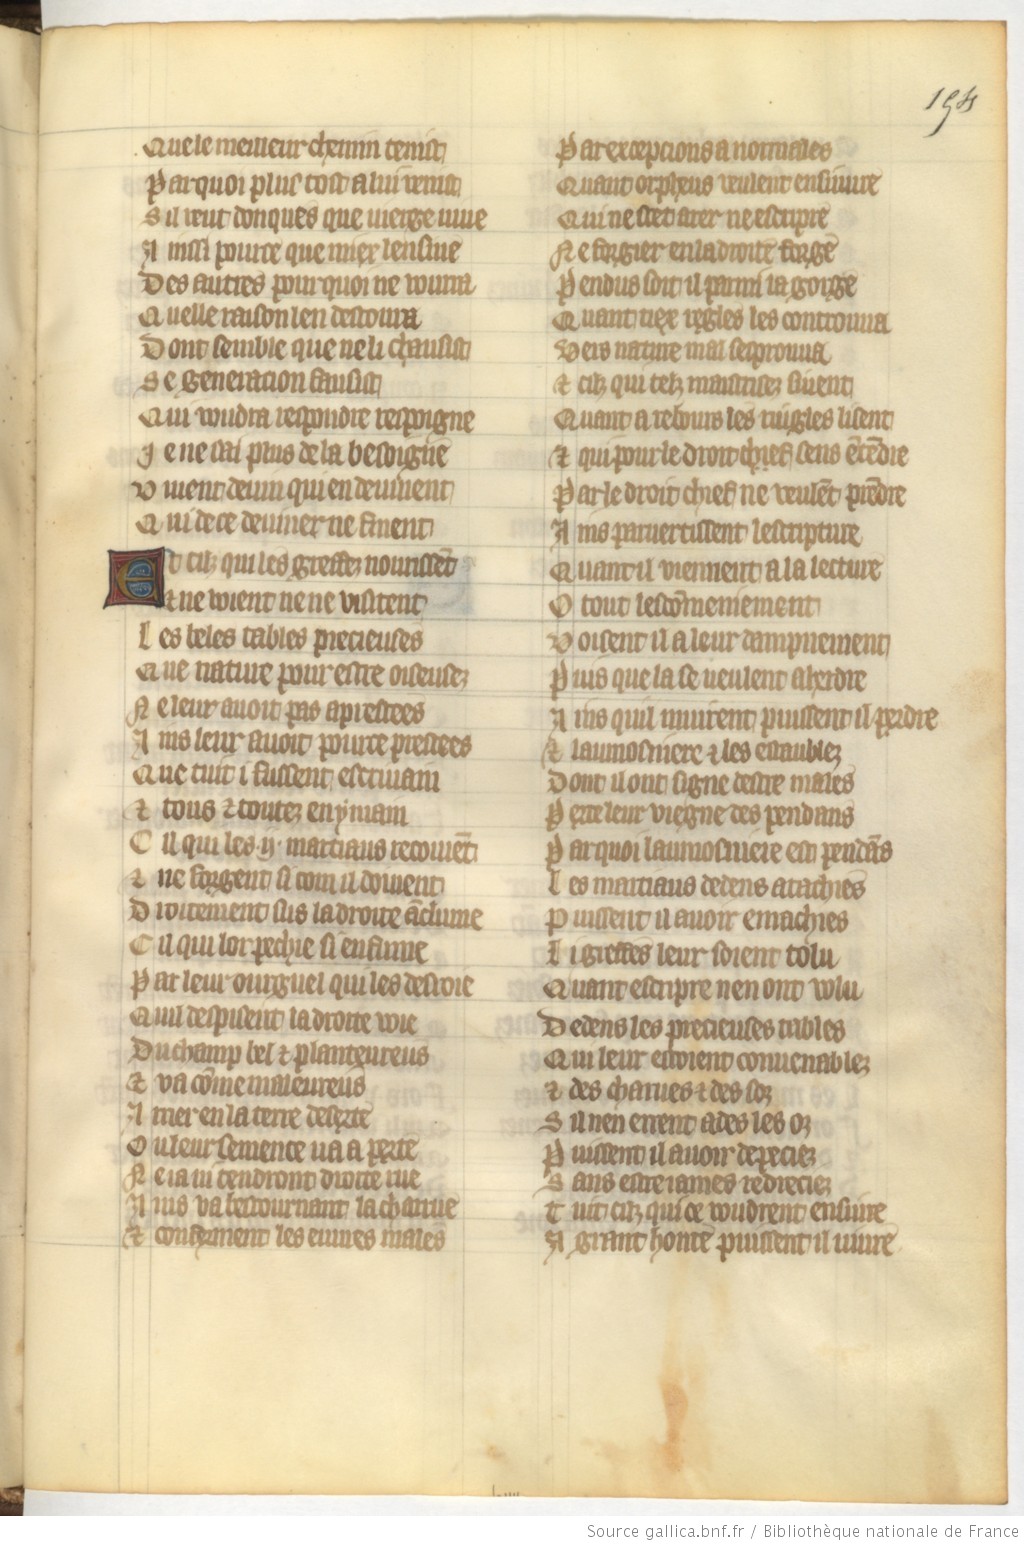 194
Que le meilleur chemin tenist
Par quoi plus tost a lui venist
Sil veut donques que vierge vive
Ainssi pource que miex lensive
Des autres pour quoi ne vourra
Quelle raison len destoura
Dont semble que ne li chausist
Se generacion fausist
Qui voudra respondre respoigne
Je ne sai plus de la besoigne
Viennent devin qui en devinent
Qui de ce deviner ne finent
Et cilz qui les greffez nourissēt
Et ne voient ne ne visitent
Les beles tables precieuses
Que nature pour estre oiseusez
Ne leur avoit pas aprestees
Ains leur avoit pource prestees
Que tuit i fussent escrivain
Et tous et toutez en ymain
Cil qui les .ij. martiaus recoivēt
Et ne forgent si com il doivent
Droitement sus la droite āclume
Cil qui lor pechie si enfume
Par leur ourguel qui les desroie
Quil despisent la droite voie
Du champ bel et planteureus
Et va cōme maleureus
Amer en la terre deserte
Ou leur semence va a perte
Ne ja ni tendront droite rue
Ains va bestournant la charue
Et conferment les euvres males
Par excepcions anormales
Quant orpheus veulent ensuivre
Qui ne scet arer ne escripre
Ne forgier en la droite forge
Pendus soit il parmi la gorge
Quant tiex regles les controuva
Vers nature mal sesprouva
Et cilz qui telz maistrisez suient
Quant a rebours les ruigles lisent
Et qui pour le droit chief sens ētēdre
Par le droit chief ne veulēt prēdre
Ains parvertissent lescripture
Quant il viennent a la lecture
O tout lescōmeniement
Voisent il a leur dampnement
Puis que la se veulent aherdre
Ains quil muirent puissent il perdre
Et laumosniere et les estaublez
Dont il ont signe destre males
Perte leur viegne des pendans
Par quoi laumosniere est pendās
Les martiaus dedens atachies
Puissent il avoir errachies
Li greffes leur soient tolu
Quant escripre nen ont volu
Dedens les precieuses tables
Qui leur estoient convenablez
Et des charues et des soz
Sil nen errent ades les oz
Puissent il avoir depeciez
Sans estre james redreciez
Tuit cilz qui ce voudrent ensuire
A grant honte puissent il vivre
Source gallica.bnf.fr / Bibliothèque nationale de France